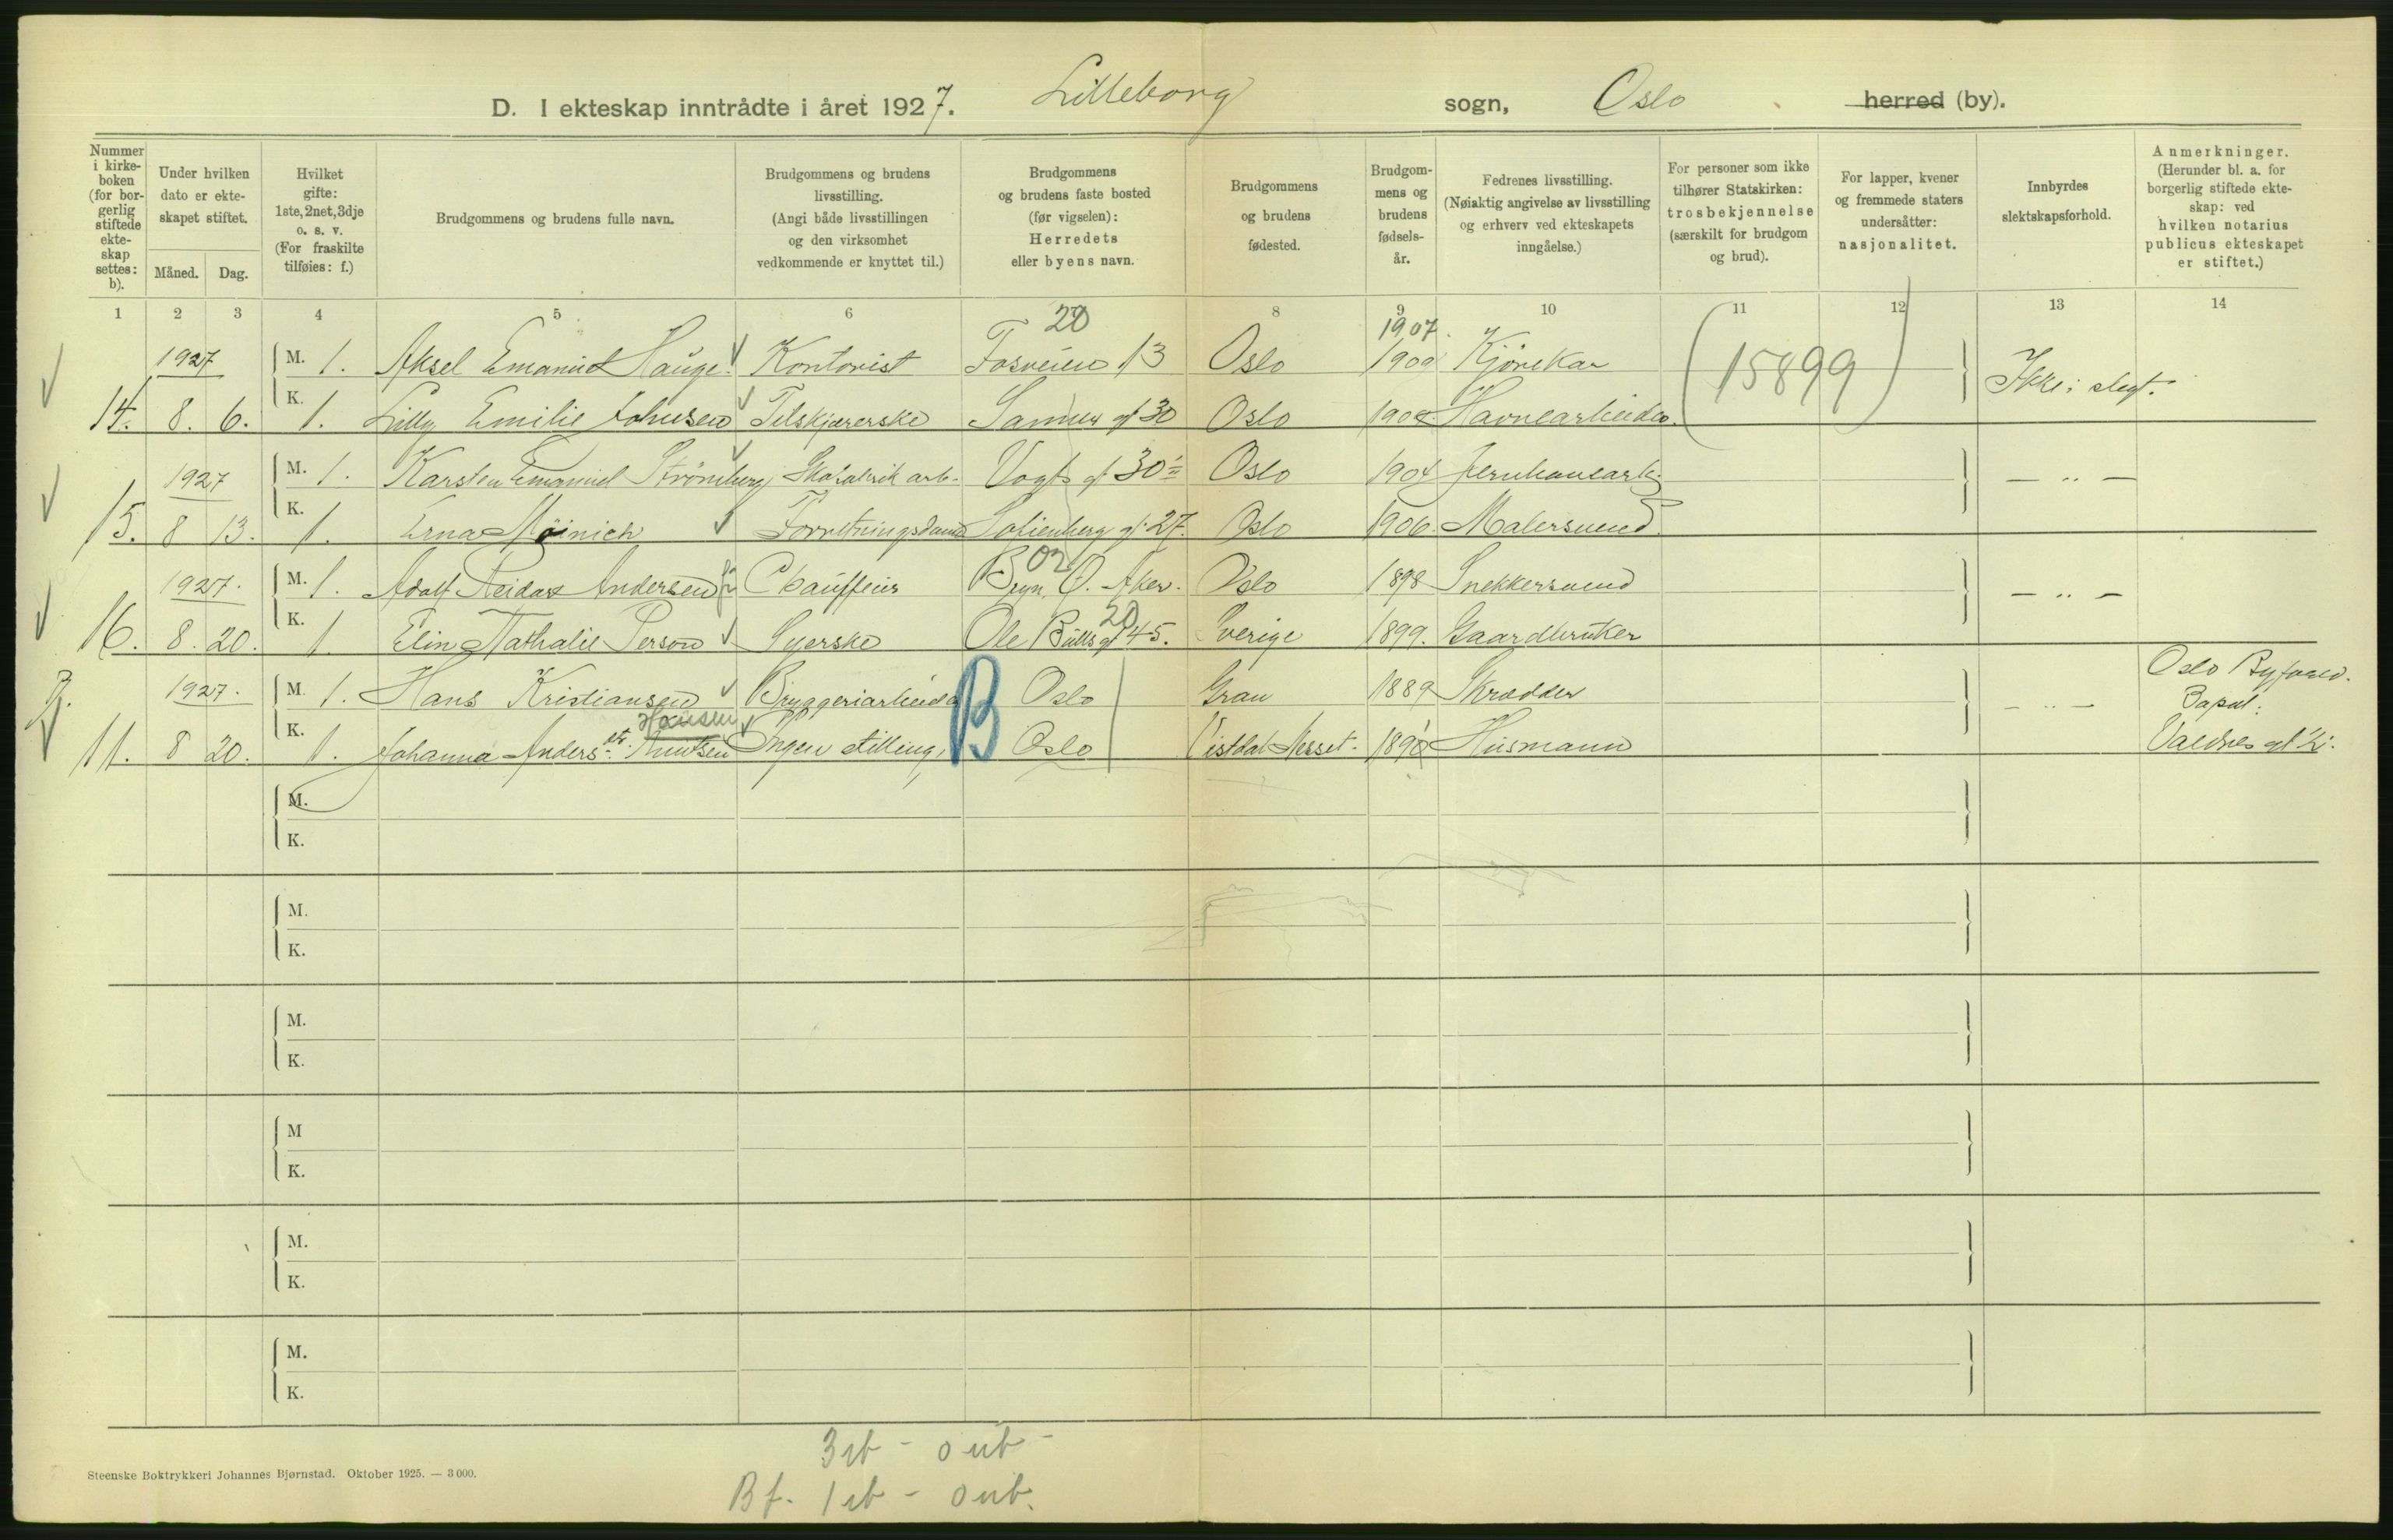 D. I ekteskap inntrådte i året 1927. Lilleborg sogn, Oslo herred (by).
Nummer i kirkeboken (for borgerlig stiftede ekteskap settes: b).
Under hvilken dato er ekteskapet stiftet.
Måned. Dag.
Hvilket gifte: 1ste, 2net, 3dje o. s. v. (For fraskilte tilføies: f.)
Brudgommens og brudens fulle navn.
Brudgommens og brudens livsstilling. (Angi både livsstillingen og den virksomhet vedkommende er knyttet til.)
Brudgommens og brudens faste bosted (før vigselen): Herredets eller byens navn.
Brudgommens og brudens fødested.
Brudgommens og brudens fødselsår.
Fedrenes livsstilling. (Nøiaktig angivelse av livsstilling og erhverv ved ekteskapets inngåelse.)
For personer som ikke tilhører Statskirken: trosbekjennelse (særskilt for brudgom og brud).
For lapper, kvener og fremmede staters undersåtter: nasjonalitet.
Innbyrdes slektskapsforhold.
Anmerkninger. (Herunder bl. a. for borgerlig stiftede ekteskap: ved hvilken notarius publicus ekteskapet er stiftet.)
1 2 3 4 5 6 7 8 9 10 11 12 13 14
20 1907.
1927 M. 1. Aksel Emanuel Hauge Kontorist Fosveien 13 Oslo 1900 Kjørekar (15899) Ikke i slegt.
14. 8. 6. K. 1. Lilly Emilie Johnsen Tilskjærerske Sannergt 30 Oslo 1908 Havnearbeider.
1927 M. 1. Karsten Emanuel Strömberg Skofabrik arb. Vogts gt 30 Oslo 1904 Jernbanearb. — „ —
15. 8 13. K. 1. Erna Møinich Forretningsdame Sofienberg gt. 27. Oslo 1906. Malersvend.
1927. M. 1. Adolf Reidar Andersen Chauffeur Bryn, Ø. Aker. Oslo 1898 Snekkersvend — „ —
20
16. 8. 20. K. 1. Elin Nathalie Person Syerske Ole Bulls gt 45. Sverige 1899. Gaardbruker
B. 1927. M. 1. Hans Kristiansen Bryggeriarbeider B Oslo Gran 1889 Skrædder — „ — Oslo Byfoged.
Hansen
11. 8 20. K. 1. Johanna Andersdtr. Knutsen Ingen stilling, Oslo Vistdal Nesset. 1890 Husmann
M.
K.
M.
K.
M.
K.
M
K.
M.
K.
M.
K.
3 eb - 0 ub -
Bf. 1 eb - 0 ub.
Steenske Boktrykkeri Johannes Bjørnstad. Oktober 1925. — 3 000.